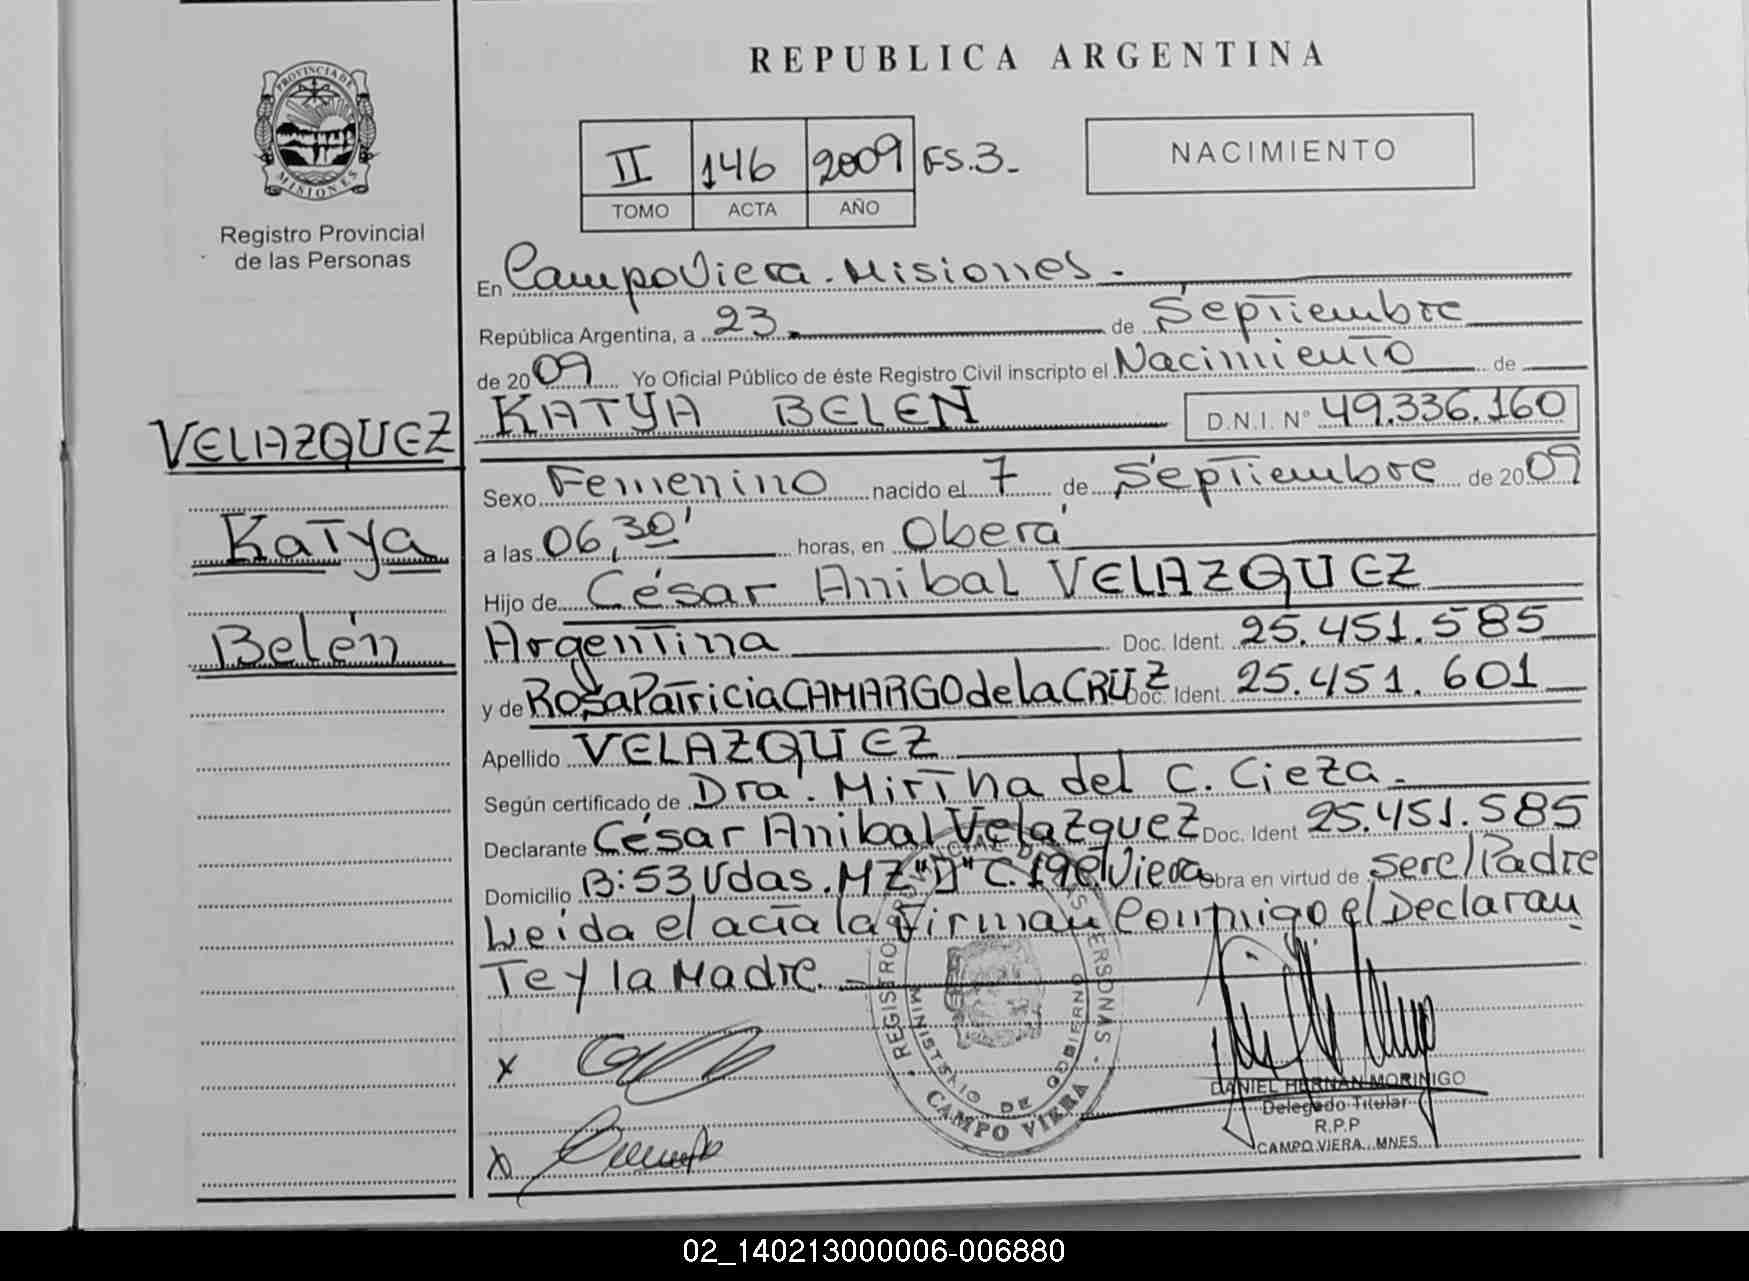 REPUBLICA ARGENTINA
PROVINCIA DE MISIONES
Registro Provincial
de las Personas
II 146 2009 FS.3.-
TOMO ACTA AÑO
NACIMIENTO
En Campo Viera. Misiones.-
República Argentina, a 23 de Septiembre
de 2009 Yo Oficial Público de éste Registro Civil inscripto el Nacimiento de
KATYA BELEN D.N.I. N° 49.336.160
VELAZQUEZ
Katya
Belén
Sexo Femenino nacido el 7 de Septiembre de 2009
a las 06,30' horas, en Oberá
Hijo de César Anibal VELAZQUEZ
Argentina Doc. Ident. 25.451.585
y de Rosa Patricia CAMARGO de la CRUZ Doc. Ident. 25.451.601
Apellido VELAZQUEZ
Según certificado de Dra. Mirtha del C. Cieza.-
Declarante César Anibal Velazquez Doc. Ident 25.451.585
Domicilio B: 53 Vdas. MZ "D" C.19 Viera Obra en virtud de ser el Padre
Leida el acta la firman Conmigo el Declaran
Te y la Madre.-
REGISTRO PERSONAS
MINISTERIO DE GOBIERNO
CAMPO VIERA
x
x
DANIEL HERNAN MORINIGO
Delegado Titular
R.P.P
CAMPO VIERA. MNES.
02_140213000006-006880